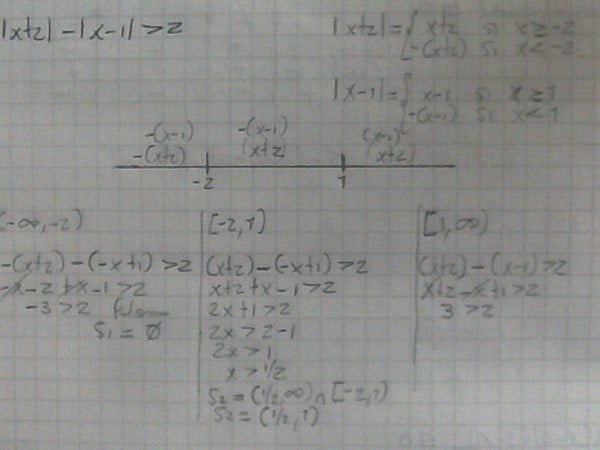 |x+2| - |x-1| > 2
|x+2| = { x+2 si x ≥ -2
-(x+2) si x < -2
|x-1| = { x-1 si x ≥ 1
-(x-1) si x < 1
-(x-1) -(x-1) (x-1)
-(x+2) (x+2) (x+2)
-2 1
(-∞,-2)
-(x+2) - (-x+1) > 2
-x-2+x-1 > 2
-3 > 2
S1 = ∅
[-2,1)
(x+2) - (-x+1) > 2
x+2+x-1 > 2
2x+1 > 2
2x > 2-1
2x > 1
x > 1/2
S2 = (1/2,∞) ∩ [-2,1)
S2 = (1/2,1)
[1,∞)
(x+2) - (x-1) > 2
x+2-x+1 > 2
3 > 2